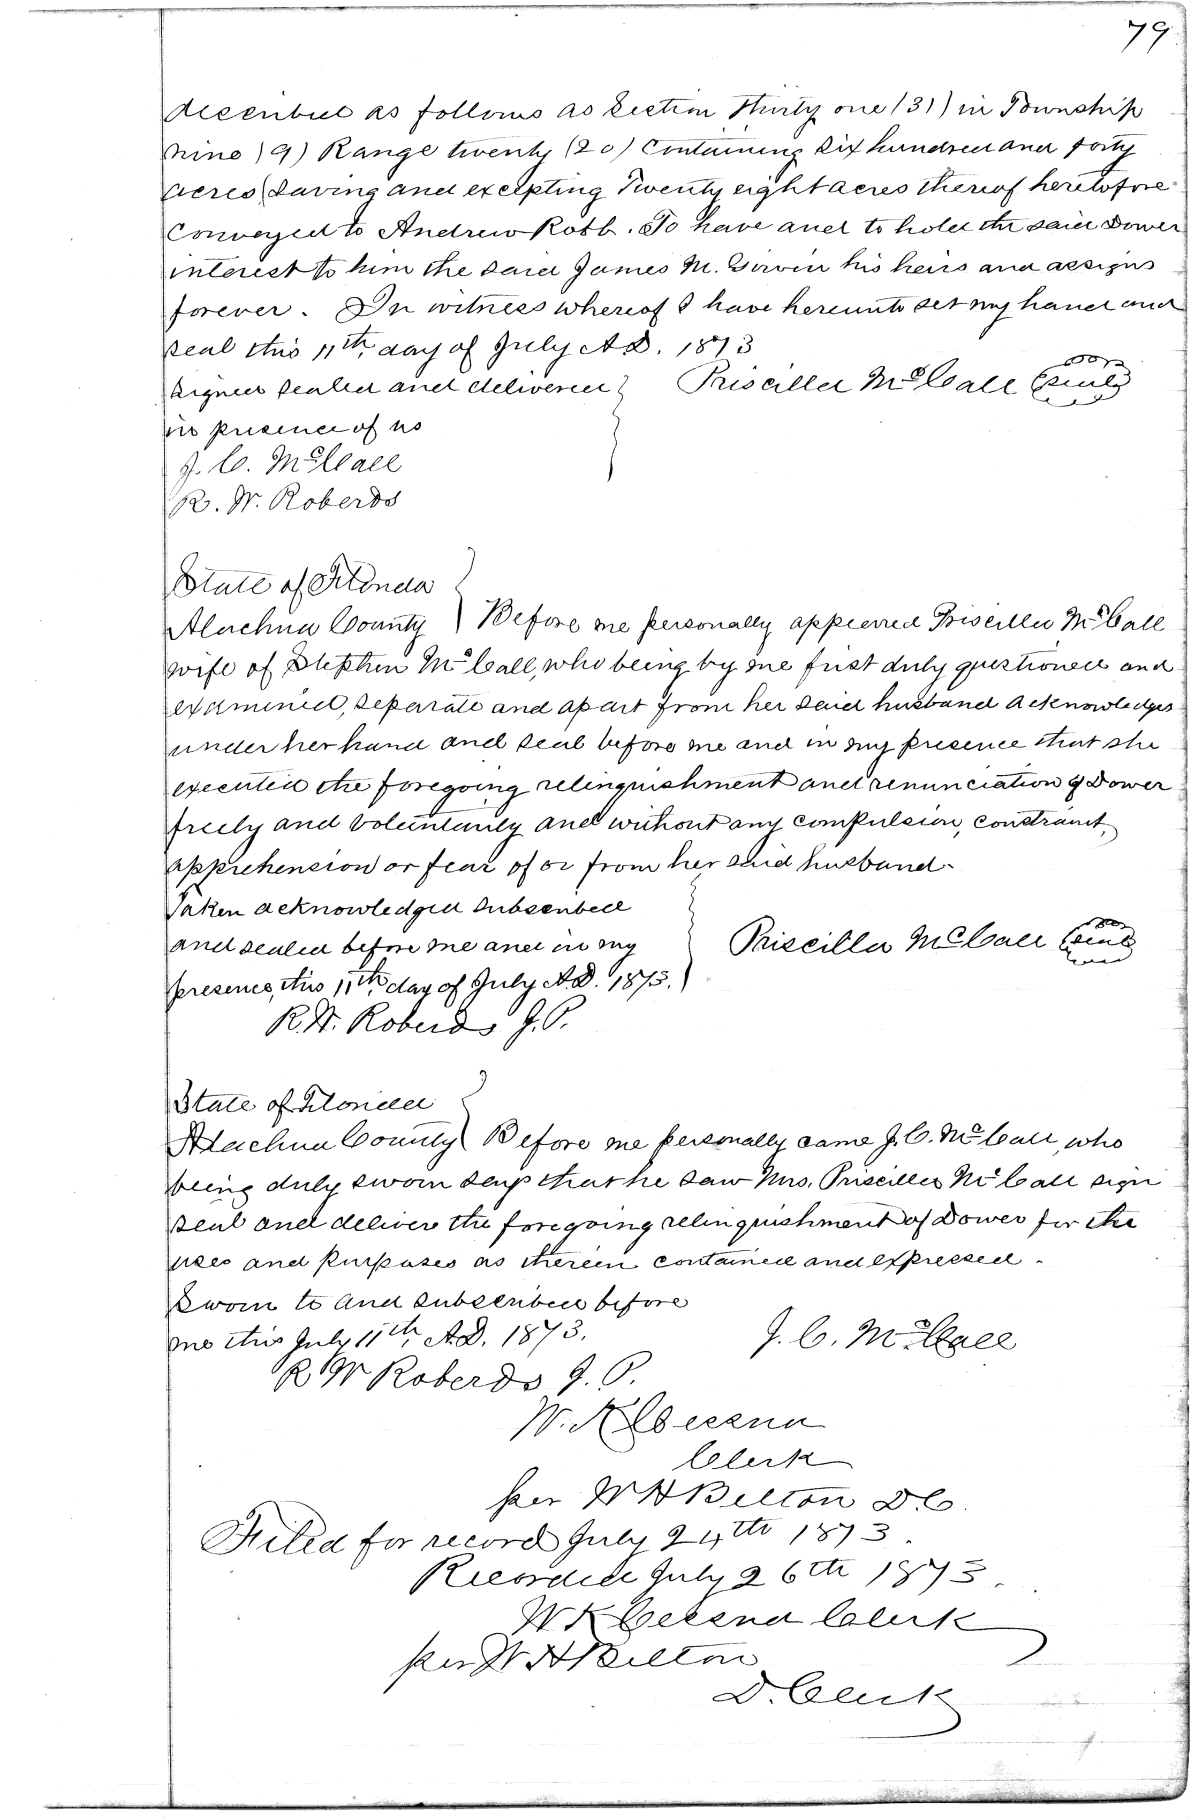 79
described as follows as Section Thirty one (31) in Township
nine (9) Range twenty (20) Containing Six hundred and forty
acres (Saving and excepting Twenty eight acres thereof heretofore
Conveyed to Andrew Robb. To have and to hold the said Dower
interest to him the said James M. Girvin his heirs and assigns
forever. In witness whereof I have hereunto set my hand and
seal this 11th day of July A.D. 1873
Signed sealed and delivered } Priscilla McCall (seal)
in presence of us
J. C. McCall
R. W. Roberds
State of Florida
Alachua County } Before me personally appeared Priscilla McCall
wife of Stephen McCall, who being by me first duly questioned and
examined, separate and apart from her said husband acknowledges
under her hand and seal before me and in my presence that she
executed the foregoing relinquishment and renunciation of Dower
freely and voluntarily and without any compulsion, constraint,
apprehension or fear of or from her said husband.
Taken acknowledged subscribed
and sealed before me and in my } Priscilla McCall (seal)
presence, this 11th day of July A.D. 1873.
R. W. Roberds J.P.
State of Florida
Alachua County } Before me personally came J. C. McCall, who
being duly sworn says that he saw Mrs. Priscilla McCall sign
seal and deliver the foregoing relinquishment of Dower for the
uses and purposes as therein contained and expressed.
Sworn to and subscribed before
me this July 11th A.D. 1873. J. C. McCall
R W Roberds J. P.
W. K Cessna
Clerk
per W H Belton D.C.
Filed for record July 24th 1873.
Recorded July 26th 1873.
W K Cessna Clerk
per W H Belton
D. Clerk